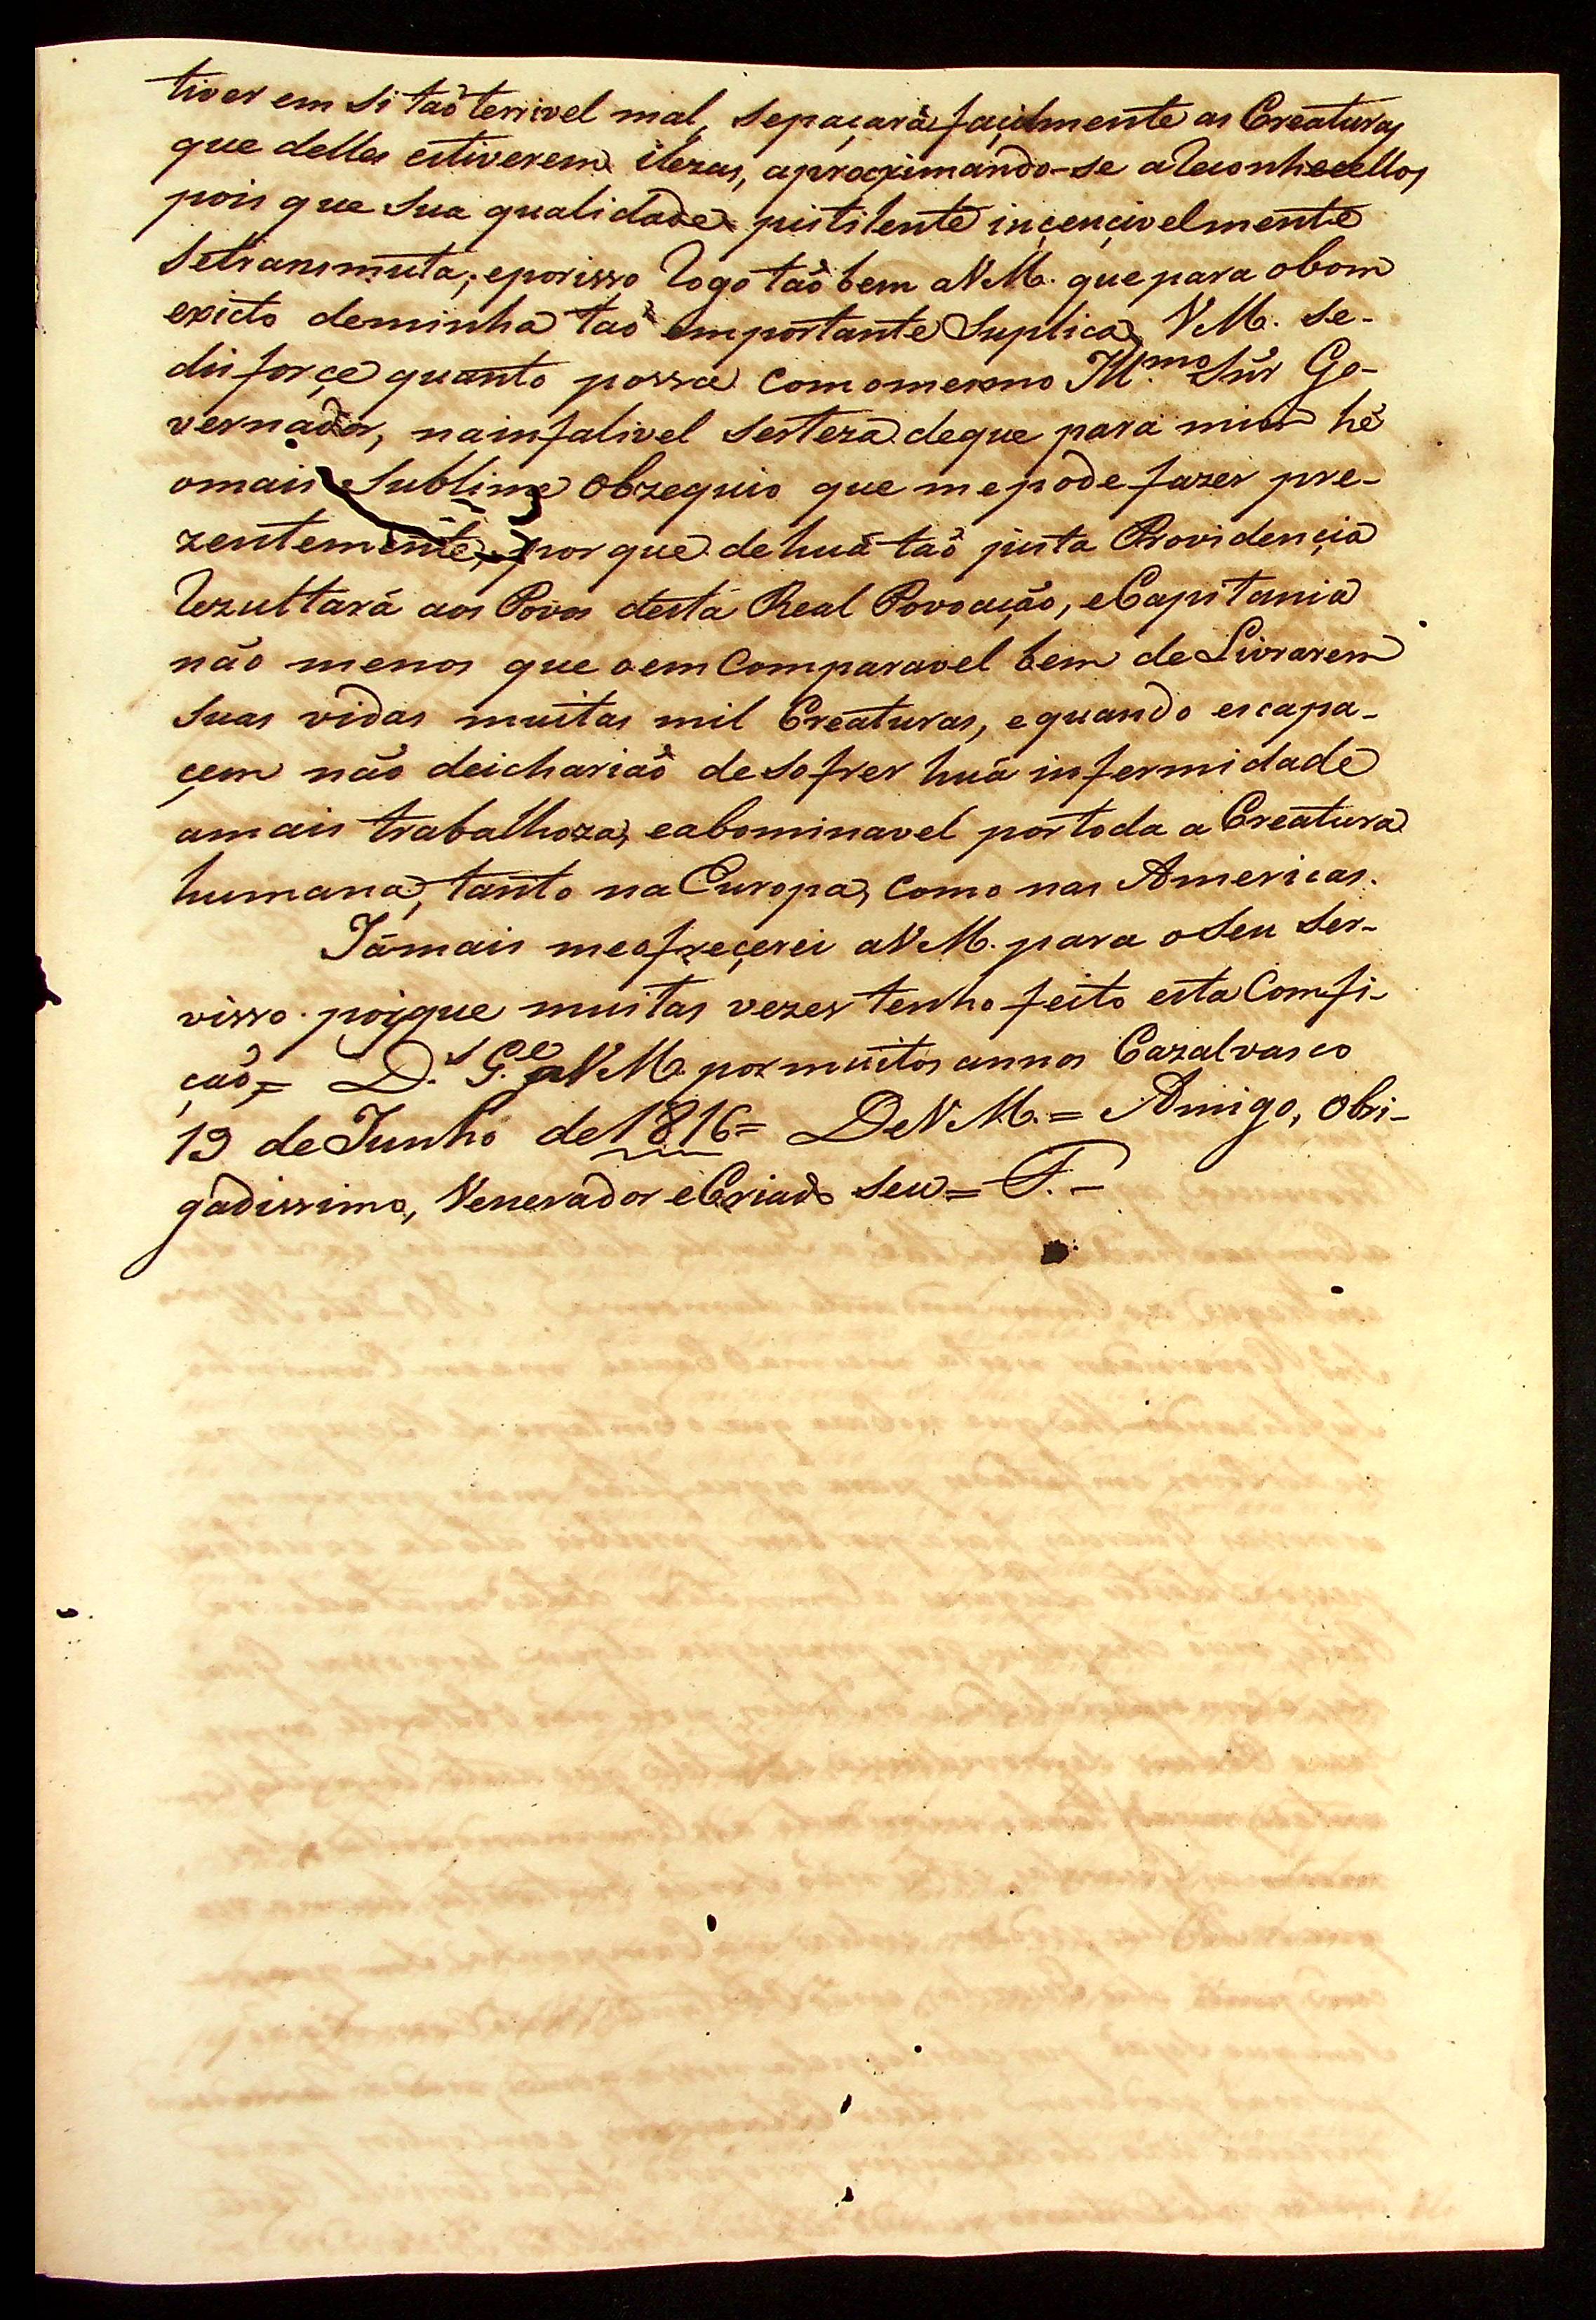 tiver em si taõ terrivel mal, sepaçará façilmente as Creaturas
que delles estiverem ilezas, aprocximando-se a Reconhecellos
pois que sua qualidade pistilente inçençivelmente
setransmuta; eporisso Rogo taõbem aVM. que para obom
exicto deminha taõ emportante Suplica, VM. se-
disforçe quanto possa comomesmo Ill.mo Snr Go-
vernador, nainfalivel serteza deque para mim hé
omais Sublime Obzequio que mepode fazer pre-
zentemente, porque dehuã taõ justa Providençia
Rezultará aos Povos desta Real Povoação, eCapitania
não menos que oemComparavel bem de Livrarem
suas vidas muitas mil Creaturas, equando escapa-
çem não deichariaõ desofrer huã infermidade
amais trabalhoza, eabominavel portoda a Creatura
humana, tanto na Europa, como nas Americas.
Jámais meofreçerei aVM. para oseu ser-
visso porque muitas vezes tenho feito esta Comfi-
çaõ = D.s G.e aVM. por muitos annos Cazalvasco
19 de Junho de 1816 = DeVM. = Amigo, Obri-
gadissimo, Venerador eCriado seu = F. -